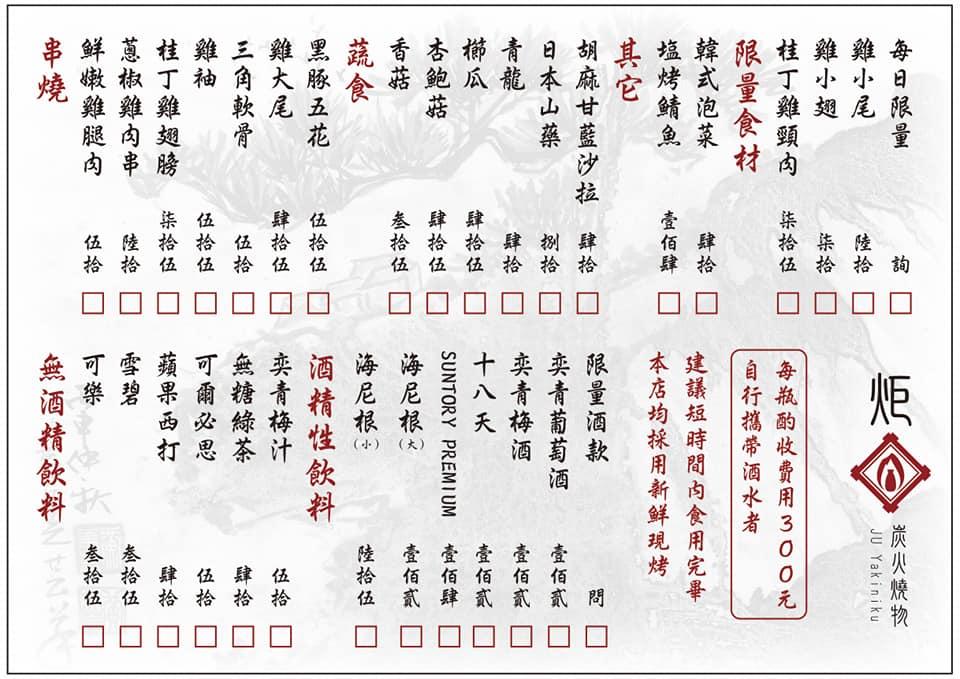 串燒
鮮嫩雞腿肉 伍拾
蔥椒雞肉串 陸拾
桂丁雞翅膀 柒拾伍
雞袖 伍拾伍
三角軟骨 伍拾
雞大尾 肆拾伍
黑豚五花 伍拾伍
蔬食
香菇 叁拾伍
杏鮑菇 肆拾伍
櫛瓜 肆拾伍
青龍 肆拾
日本山藥 捌拾
胡麻甘藍沙拉 肆拾
其它
塩烤鯖魚 壹佰肆
韓式泡菜 肆拾
限量食材
桂丁雞頸肉 柒拾伍
雞小翅 柒拾
雞小尾 陸拾
每日限量 詢
無酒精飲料
可樂 叁拾伍
雪碧 叁拾伍
蘋果西打 肆拾
可爾必思 伍拾
無糖綠茶 肆拾
奕青梅汁 伍拾
酒精性飲料
海尼根(小) 陸拾伍
海尼根(大) 壹佰貳
SUNTORY PREMIUM 壹佰肆
十八天 壹佰貳
奕青梅酒 壹佰貳
奕青葡萄酒 壹佰貳
限量酒款 問
本店均採用新鮮現烤
建議短時間內食用完畢
自行攜帶酒水者
每瓶酌收費用300元
炬
炭火燒物
JU Yakiniku